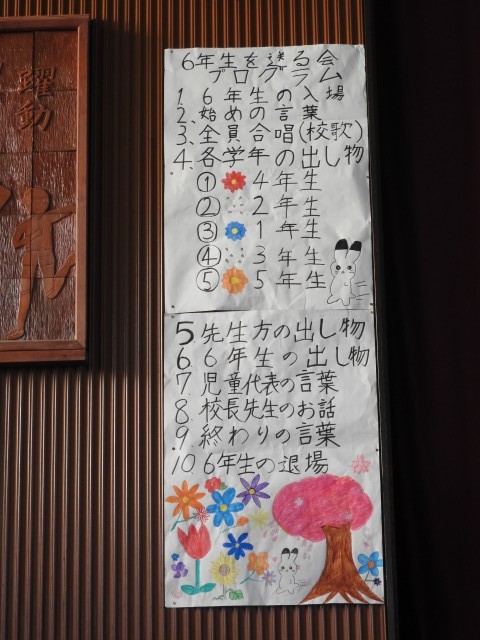 躍動
6年生を送る会
プログラム
1. 6年生の入場
2. 始めの言葉
3. 全員合唱(校歌)
4. 各学年の出し物
① 4年生
② 2年生
③ 1年生
④ 3年生
⑤ 5年生
5 先生方の出し物
6. 6年生の出し物
7. 児童代表の言葉
8 校長先生のお話
9. 終わりの言葉
10. 6年生の退場